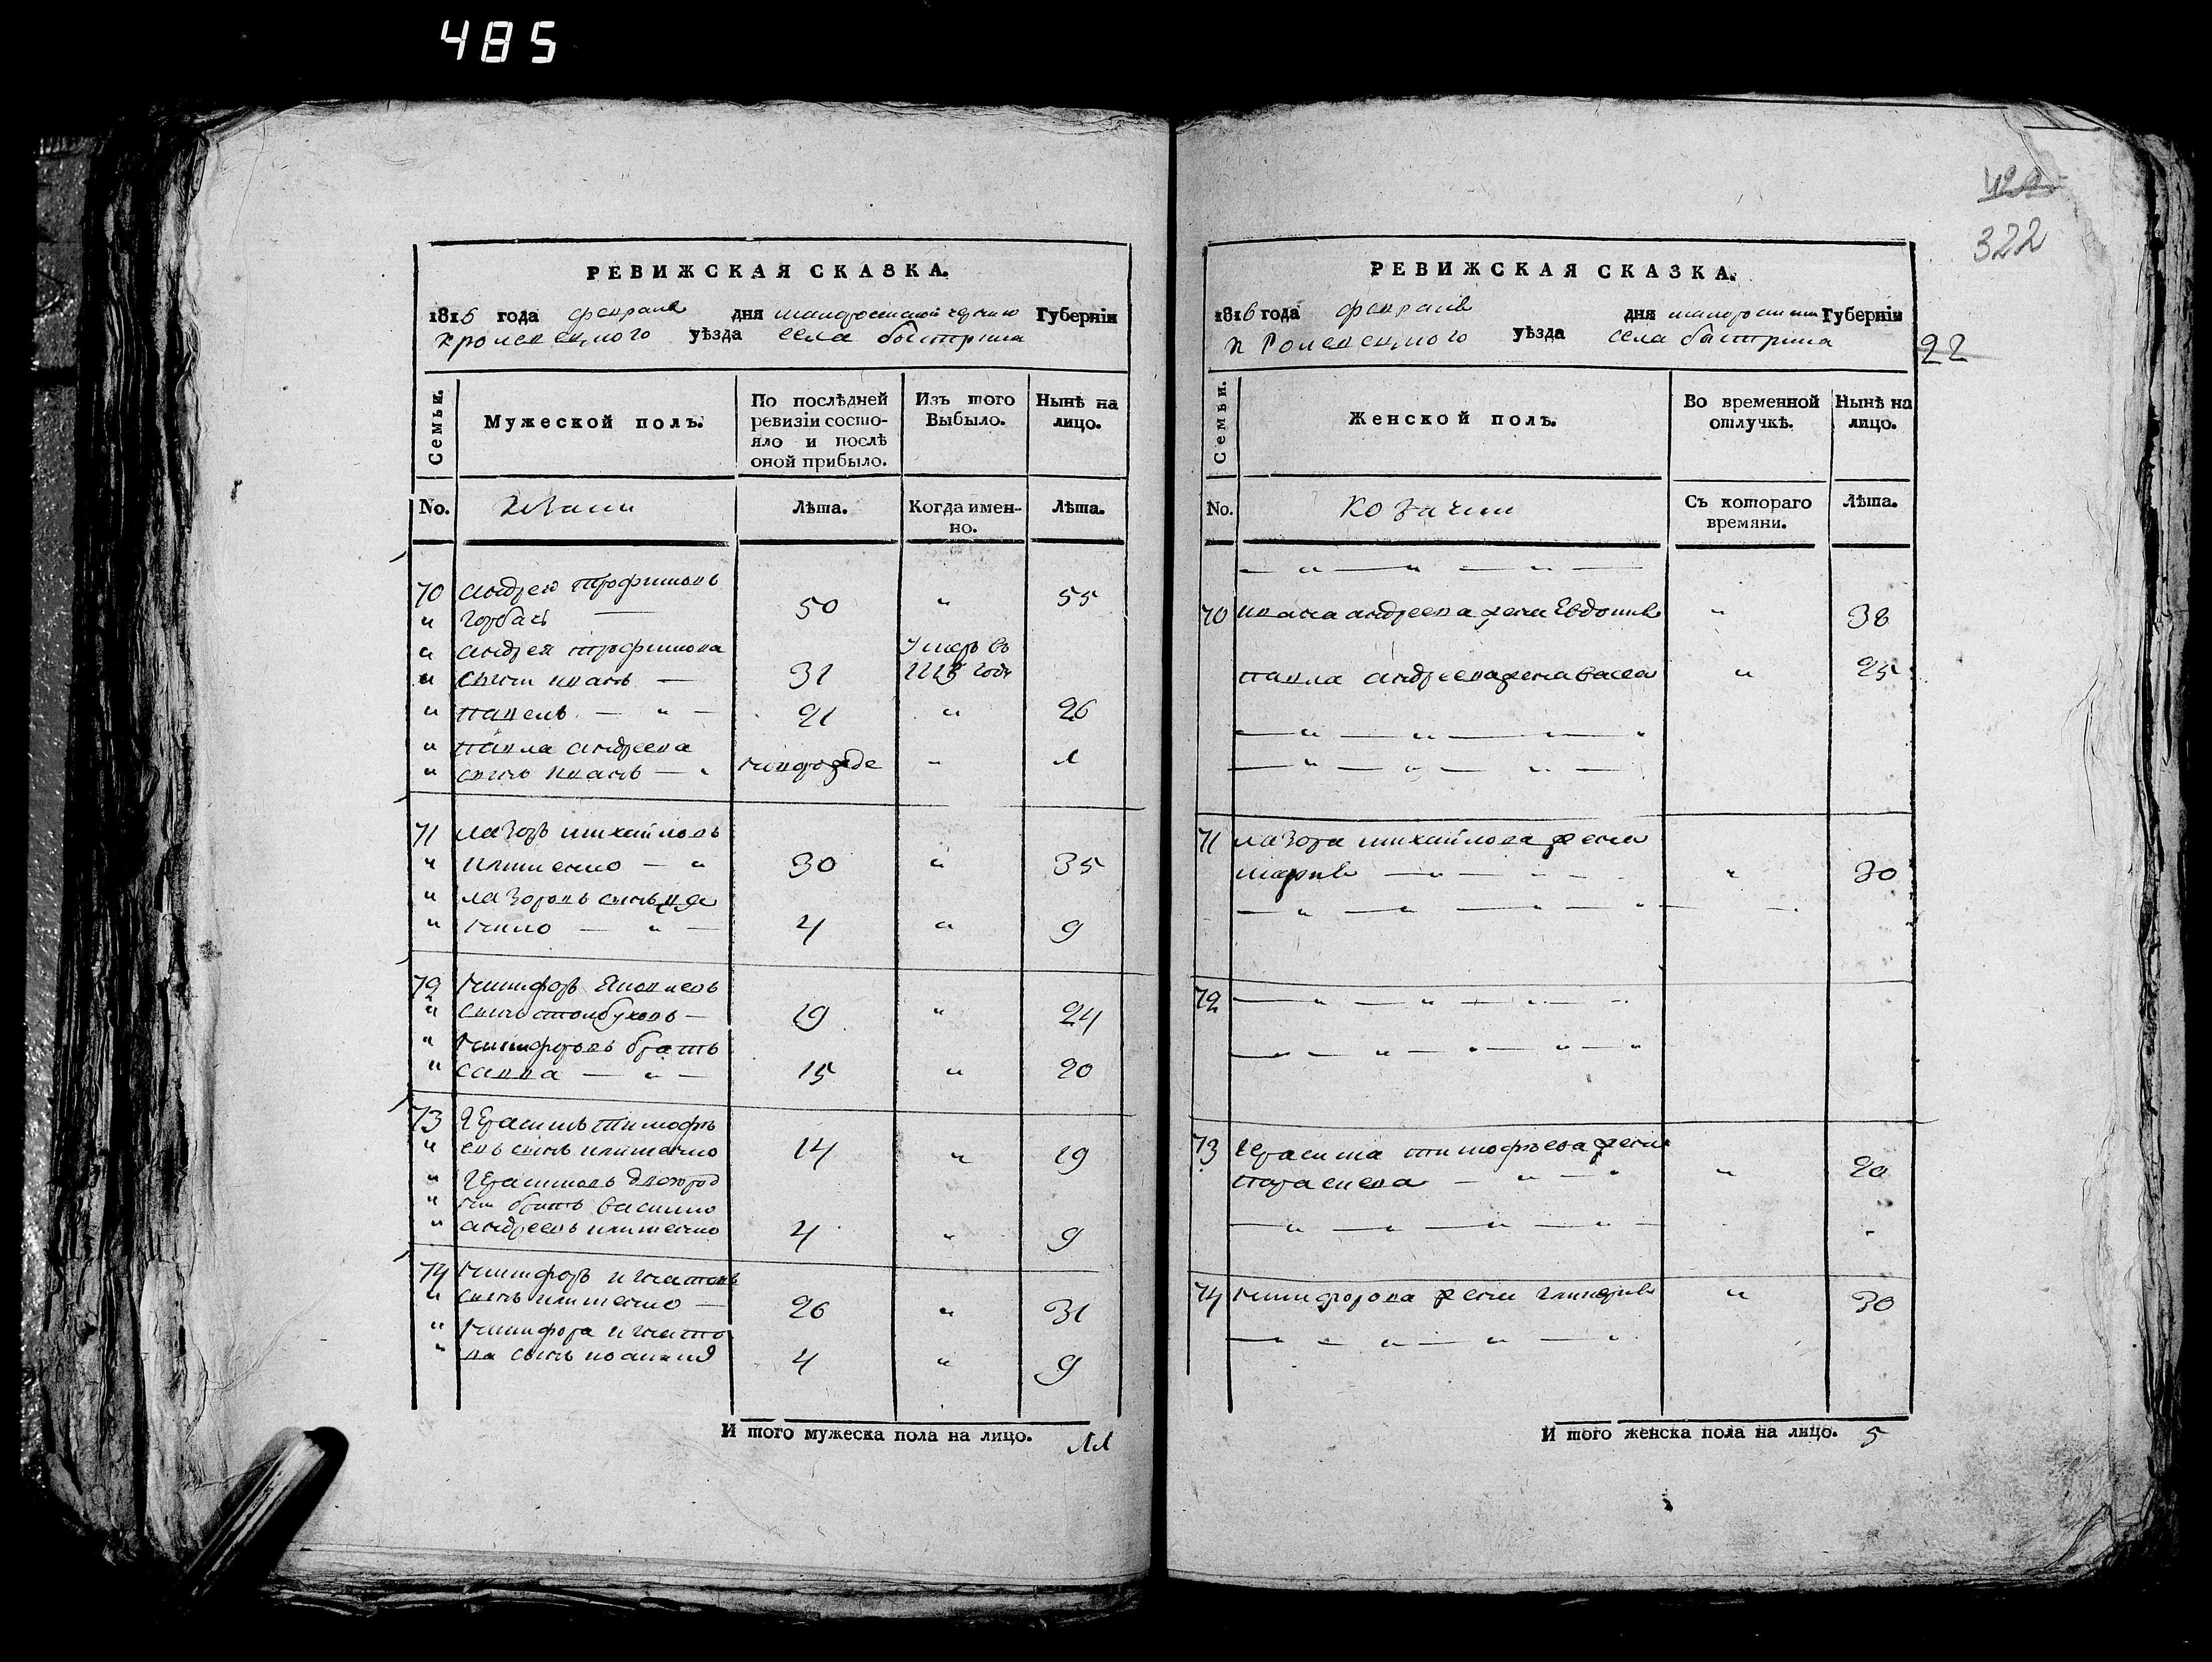 485
РЕВИЖСКАЯ СКАЗКА.
1816 года февраля дня малоросийской черниго Губерніи
кролевецкого уѣзда села быстрика
Семьи.
Мужеской полъ.
По послѣдней ревизіи состояло и послѣ оной прибыло.
Изъ того Выбыло.
Нынѣ на лицо.
No.
Лѣта.
Когда именно.
Лѣта.
70 андрей трофимовъ
" горбачь — 50 " 55
" андрея трофимова умеръ въ
" сынъ иванъ — 31 году
" павелъ — " — 21 " 26
" павла андреева
" сынъ иванъ — " новорожде " 1
71 лазоръ михайловъ
" — " 30 " 35
" лазоровъ сынъ
" — " — 4 " 9
72 никифоръ
" сынъ столбуховъ — 19 " 24
" никифоровъ братъ
" савва — " — 15 " 20
73 герасимъ тимофѣ
" евъ сынъ 14 " 19
" герасимовъ двоюрод
" ни братъ василио
" андреевъ 4 " 9
74 никифоръ игнатовъ
" сынъ — 26 " 31
" никифора игнато
" ва сынъ 4 " 9
И того мужеска пола на лицо. 11
422
322
РЕВИЖСКАЯ СКАЗКА.
1816 года февраля дня малоросийской Губерніи
кролевецкого уѣзда села быстрика
22
Семьи.
Женской полъ.
Во временной отлучкѣ.
Нынѣ на лицо.
No.
козачки
Съ котораго времяни.
Лѣта.
— " — " — " —
70 ивана андреева жена Евдокия " 38
павла андреева жена васса " 25
— " — " — " — "
— " — " — " —
71 лазора михайлова жена
мария — " — " — " 30
— " — " — " — "
72 — " — " — " — "
— " — " — " — "
73 герасима тимофѣева жена
параскева — " — " " 20
— " — " — " — " —
74 никифорова жена гликерия " 30
— " — " — " — "
И того женска пола на лицо. 5